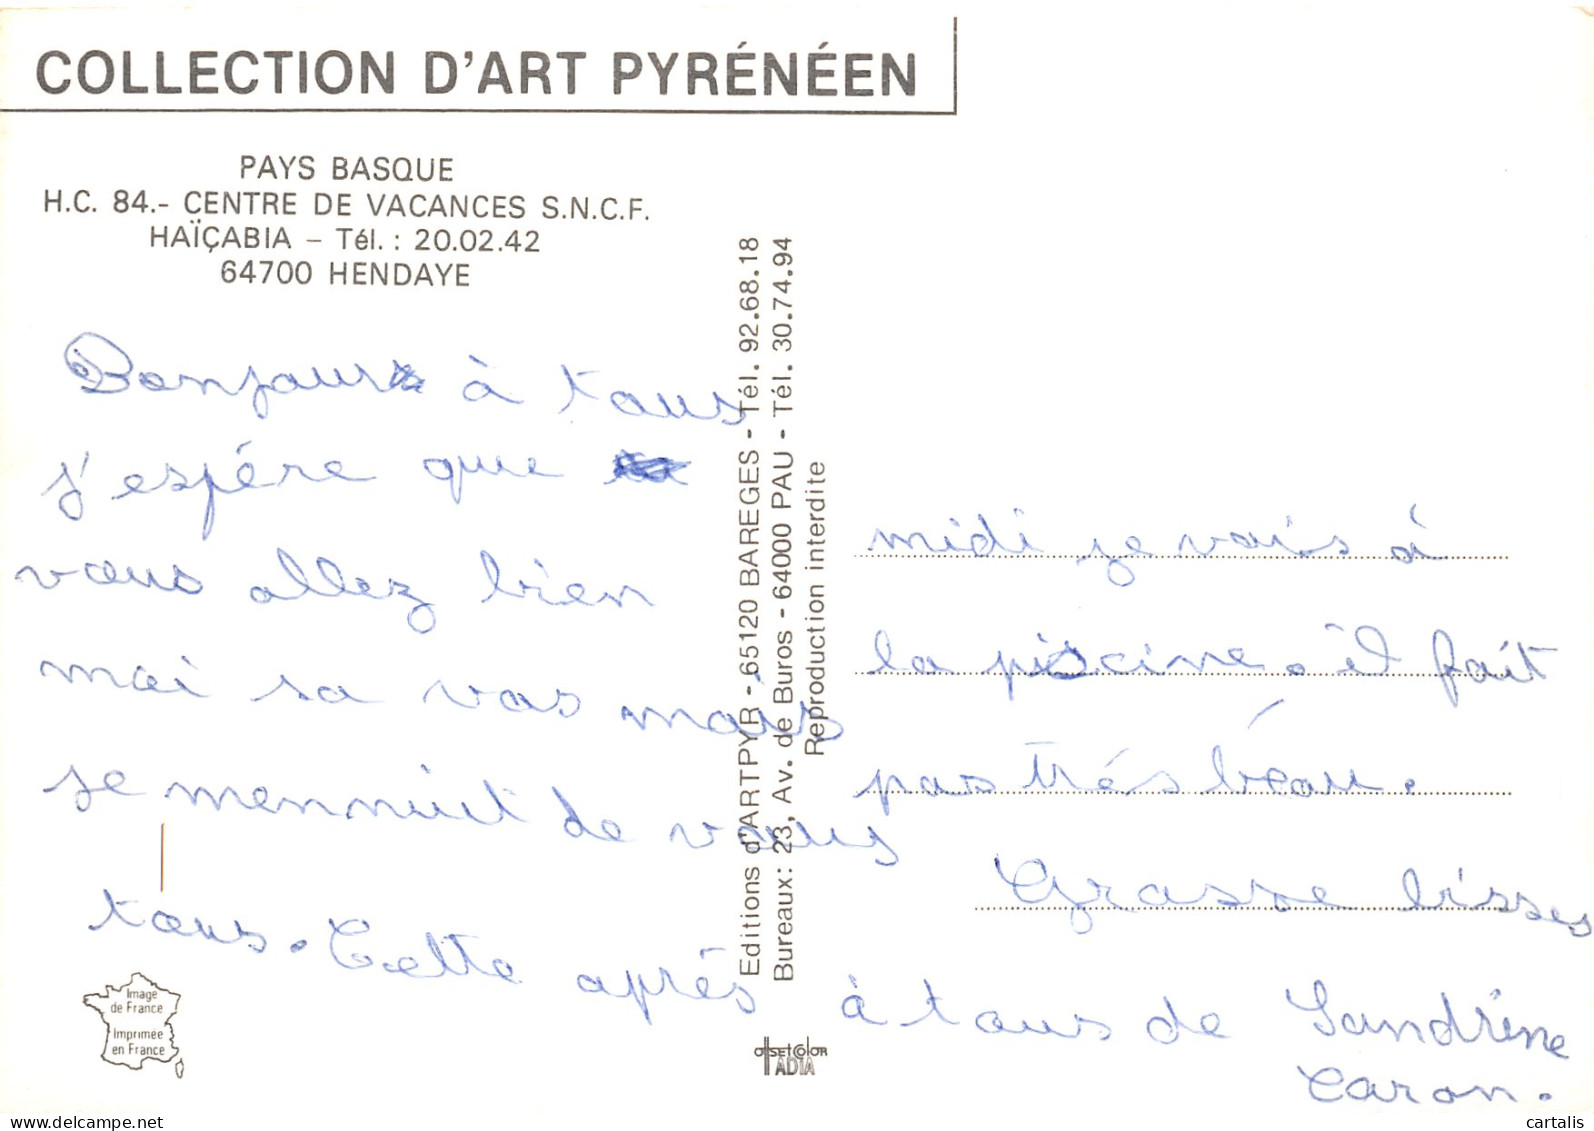 COLLECTION D'ART PYRÉNÉEN
PAYS BASQUE
H.C. 84.- CENTRE DE VACANCES S.N.C.F.
HAÏÇABIA – Tél. : 20.02.42
64700 HENDAYE
Bonjour à tous
j'espére que
vous allez bien
moi sa vas mais
je mennuit de vous
tous. Cette aprés
midi je vais á
la piscine. il fait
pas trés beau.
Grasse bisses
à tous de Sandrine
Caron.
Editions d'ARTPYR - 65120 BAREGES - Tél. 92.68.18
Bureaux: 23, Av. de Buros - 64000 PAU - Tél. 30.74.94
Reproduction interdite
Image
de France
Imprimée
en France
OFFSET COLOR
ADIA
cartalis